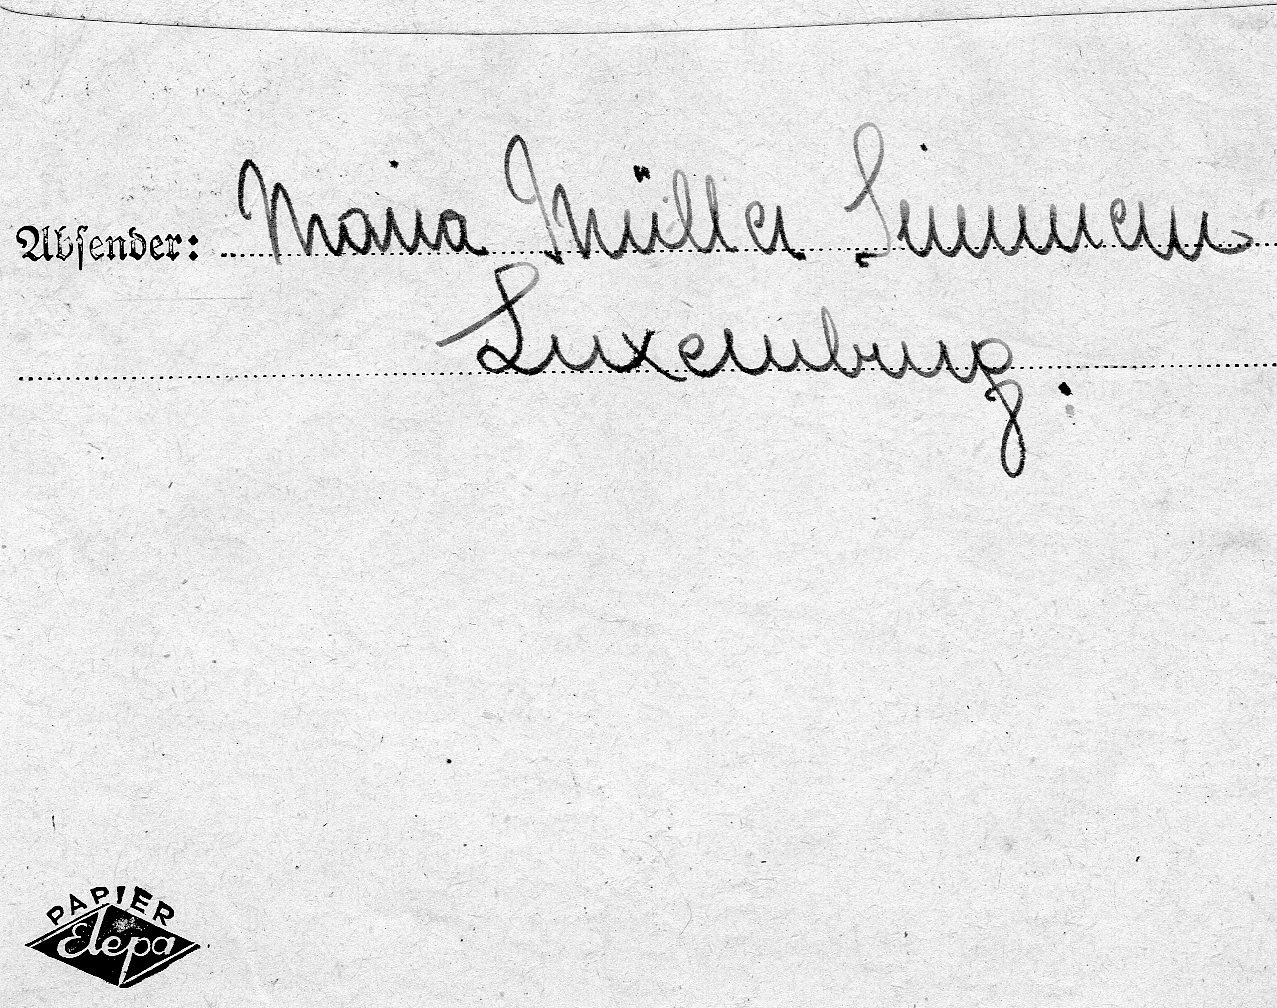 Absender: Maria Müller Simmern
Luxemburg.
PAPIER
Elepa